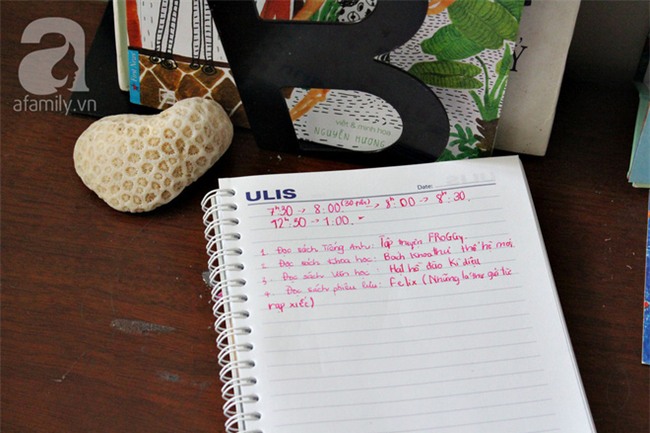 afamily.vn
B
viết & minh họa
NGUYÊN HƯƠNG
ULIS
Date:
7h30 → 8:00 (30 phút) → 8h:00 → 8h:30.
12h:30 → 1:00.
1. Đọc sách Tiếng Anh: Tập truyện FRoGGy.
2. Đọc sách khoa học: Bách khoa thư thế hệ mới.
3. Đọc sách Văn học: Hai hồ đảo kì diệu
4. Đọc sách phiêu lưu: Felix (Những lá thư gửi từ
rạp xiếc)